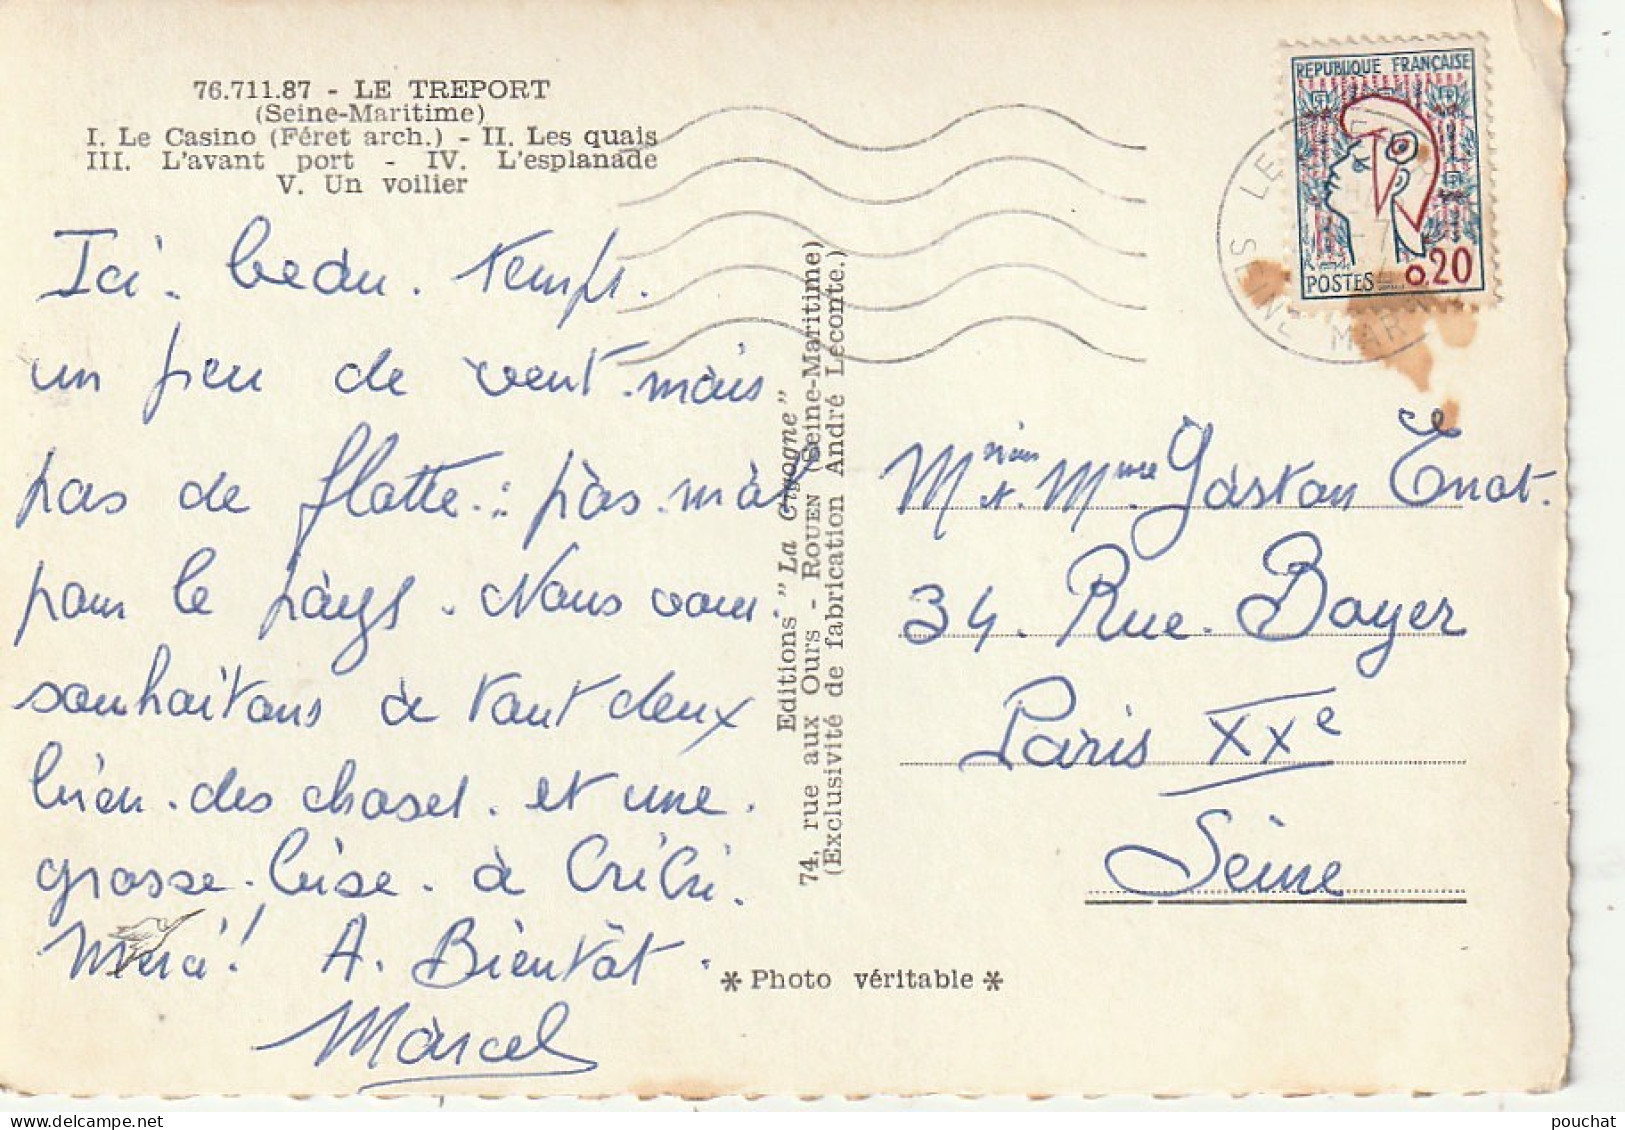 76.711.87 - LE TREPORT
(Seine-Maritime)
I. Le Casino (Féret arch.) - II. Les quais
III. L'avant port - IV. L'esplanade
V. Un voilier
Ici. beau. temps.
un peu de vent. mais
pas de flotte.: pas. mal
pour le pays. Nous vous.
souhaitons à tout deux
bien. des choses. et une.
grosse. bise. à CriCri.
Merci! A. Bientôt.
Marcel
Editions "La Cigogne"
74, rue aux Ours - ROUEN (Seine-Maritime)
(Exclusivité de fabrication André Leconte.)
* Photo véritable *
REPUBLIQUE FRANÇAISE
POSTES 0,20
LE
SEINE MAR
et. Mme Gaston Enot.
34. Rue. Boyer
Paris XXe
Seine
pouchat